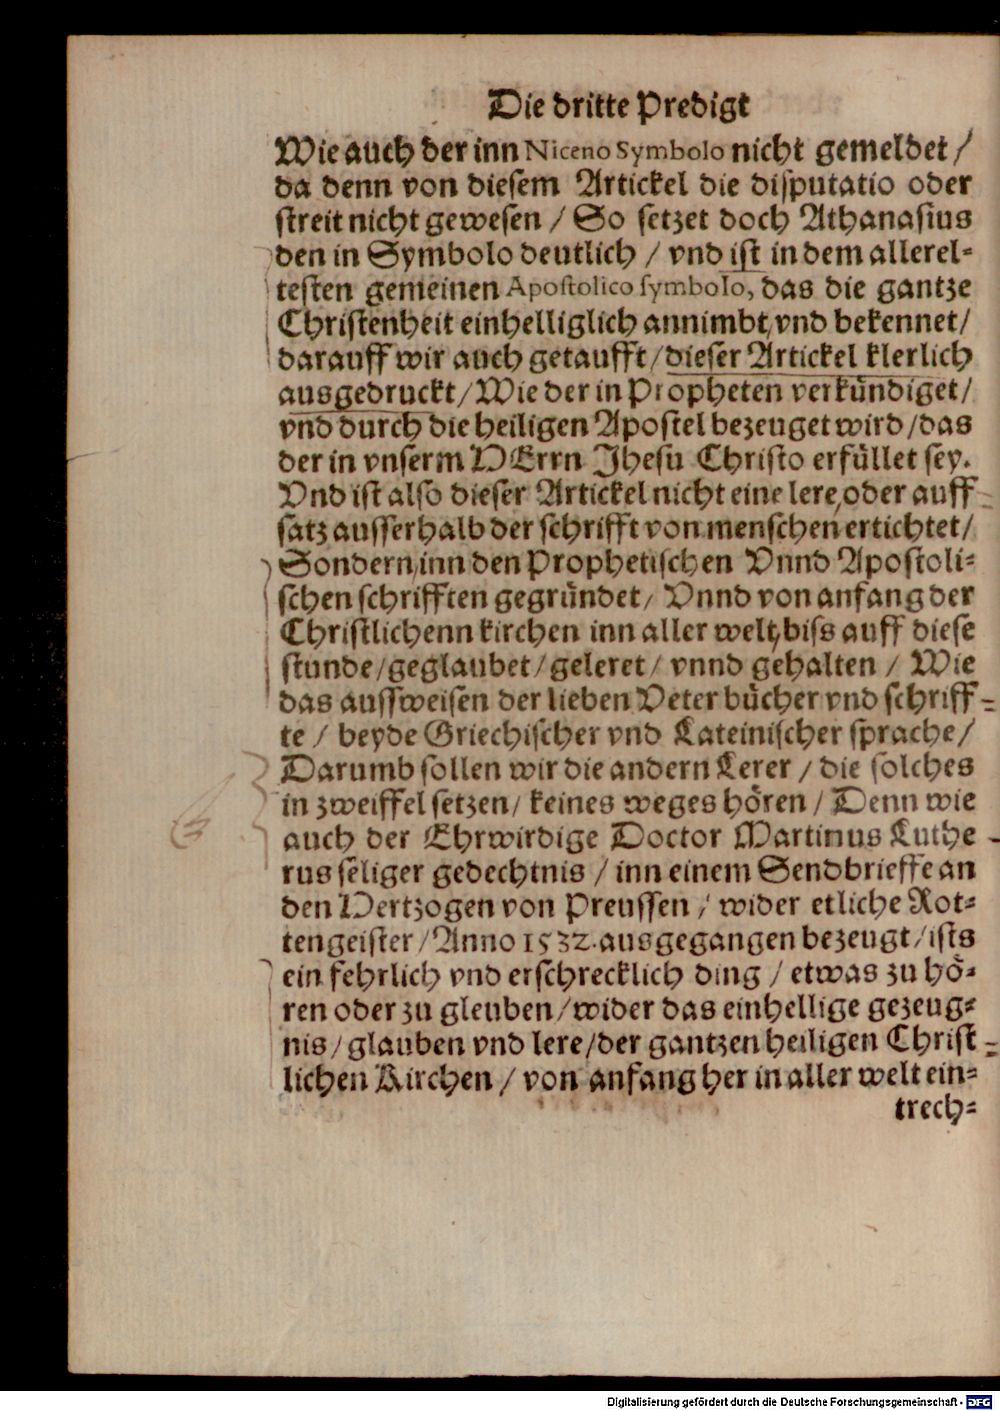 Die dritte Predigt
Wie auch der inn Niceno Symbolo nicht gemeldet /
da denn von diesem Artickel die disputatio oder
streit nicht gewesen / So setzet doch Athanasius
den in Symbolo deutlich / vnd ist in dem allerel-
testen gemeinen Apostolico symbolo, das die gantze
Christenheit einhelliglich annimbt, vnd bekennet /
darauff wir auch getaufft / dieser Artickel klerlich
ausgedruckt / Wie der in Propheten verkündiget /
vnd durch die heiligen Apostel bezeuget wird / das
der in vnserm HErrn Jhesu Christo erfüllet sey.
Vnd ist also dieser Artickel nicht eine lere, oder auff-
satz ausserhalb der schrifft von menschen ertichtet /
Sondern, inn den Prophetischen Vnnd Apostoli-
schen schrifften gegründet / Vnnd von anfang der
Christlichenn kirchen inn aller welt, biss auff diese
stunde / geglaubet / geleret / vnnd gehalten / Wie
das aussweisen der lieben Veter bücher vnd schriff-
te / beyde Griechischer vnd Lateinischer sprache /
Darumb sollen wir die andern Lerer / die solches
in zweiffel setzen / keines weges hören / Denn wie
auch der Ehrwirdige Doctor Martinus Luthe-
rus seliger gedechtnis / inn einem Sendbrieffe an
den Hertzogen von Preussen / wider etliche Rot-
tengeister / Anno 1532. ausgegangen bezeugt / ists
ein fehrlich vnd erschrecklich ding / etwas zu hö-
ren oder zu gleuben / wider das einhellige gezeug-
nis / glauben vnd lere / der gantzen heiligen Christ-
lichen Kirchen / von anfang her in aller welt ein-
trech-
Digitalisierung gefördert durch die Deutsche Forschungsgemeinschaft - DFG